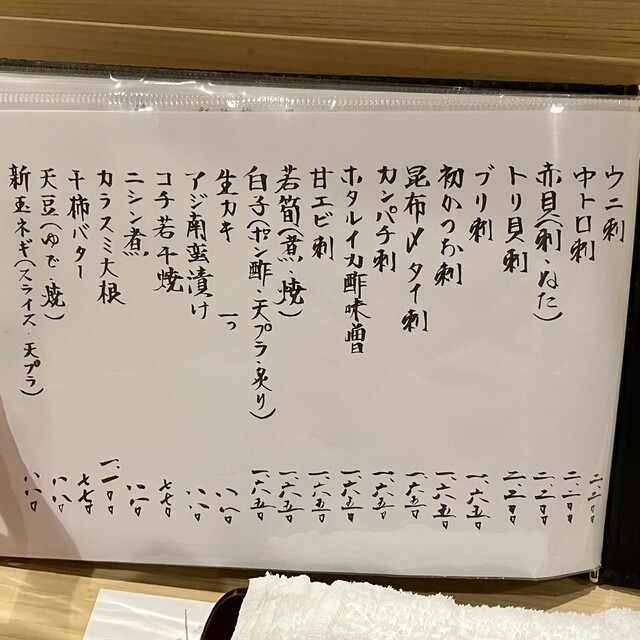 ウニ刺 二、二〇〇
中トロ刺 二、二〇〇
赤貝(刺・ぬた) 二、二〇〇
トリ貝刺 二、二〇〇
ブリ刺 一、六五〇
初かつお刺 一、六五〇
昆布〆タイ刺 一、六五〇
カンパチ刺 一、六五〇
ホタルイカ酢味噌 一、六五〇
甘エビ刺 一、六五〇
若筍(煮・焼) 一、六五〇
白子(ポン酢・天プラ・炙り) 一、六五〇
生カキ 一つ 八八〇
アジ南蛮漬け 八八〇
コチ若干焼 七七〇
ニシン煮 八八〇
カラスミ大根 一、一〇〇
干柿バター 七七〇
天豆(ゆで・焼) 八八〇
新玉ネギ(スライス・天プラ) 八八〇